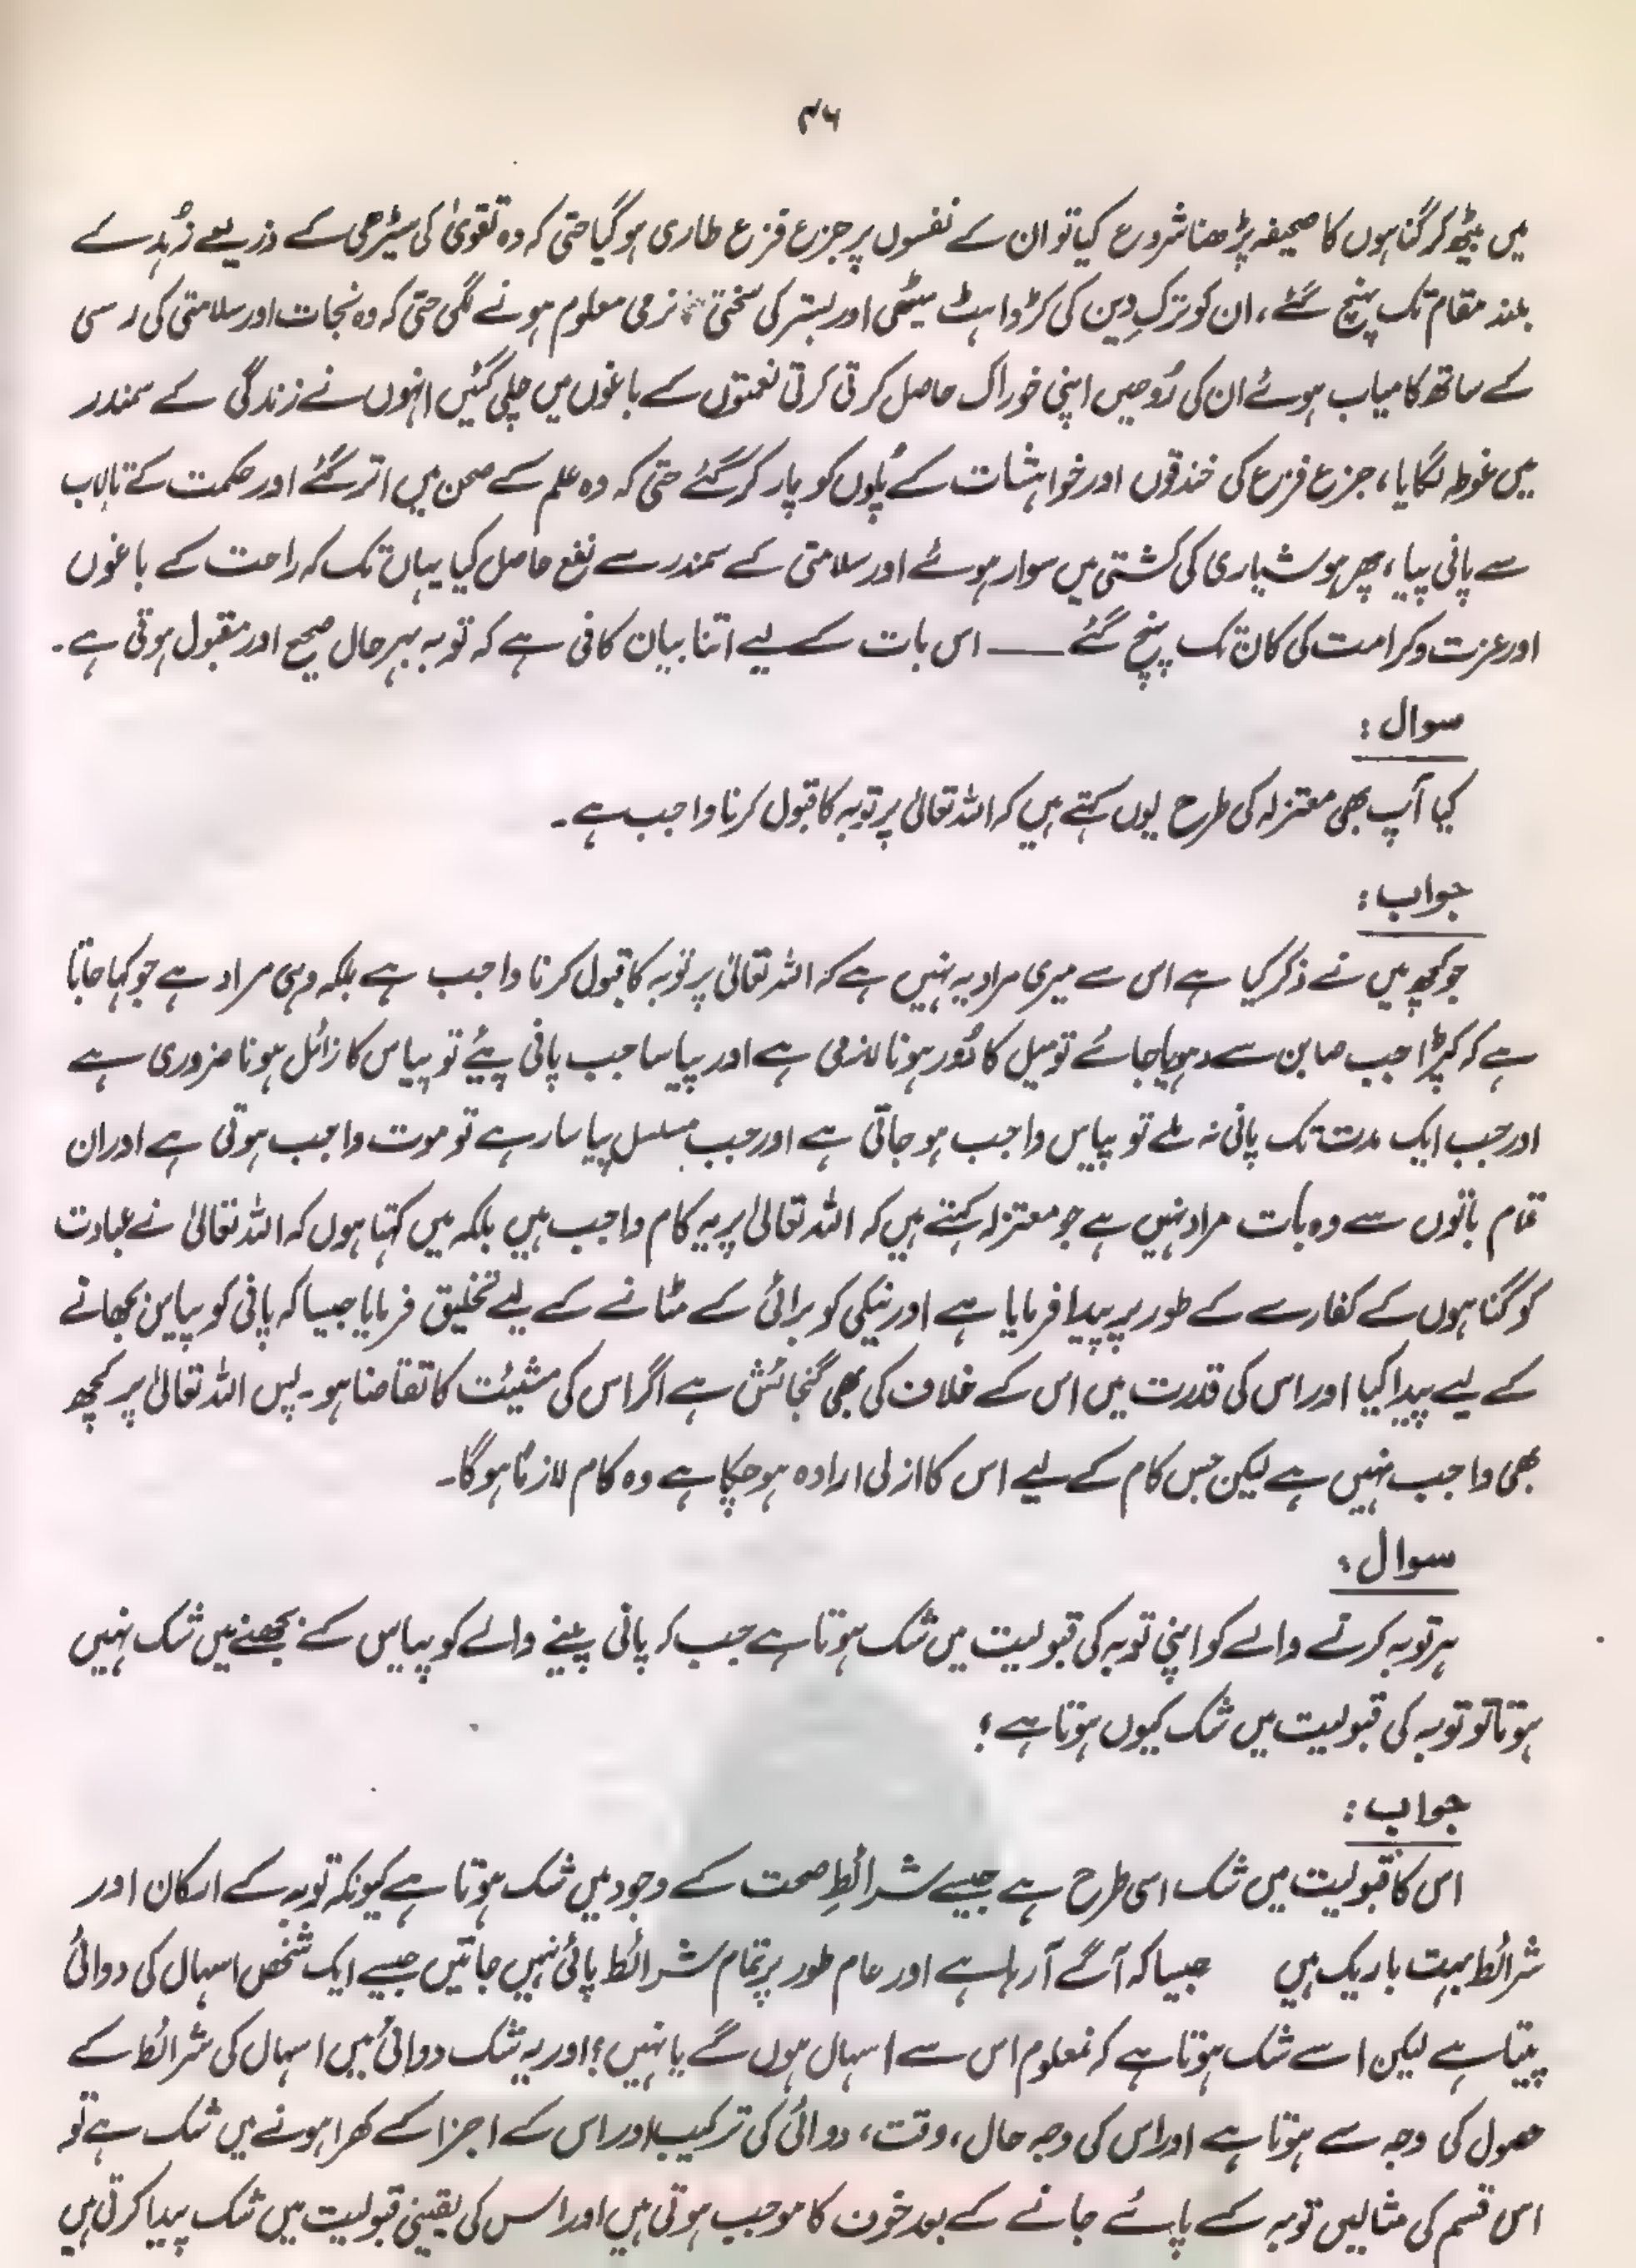 ۴۶
میں بیٹھ کر گناہوں کا صحیفہ پڑھنا شروع کیا تو ان کے نفسوں پر جزع فزع طاری ہو گیا حتی کہ وہ تقویٰ کی سیڑھی کے ذریعے زُہد کے
بلند مقام تک پہنچ گئے، ان کو ترکِ دین کی کڑواہٹ میٹھی اور بستر کی سختی نرمی معلوم ہونے لگی حتی کہ وہ نجات اور سلامتی کی رسی
کے ساتھ کامیاب ہوئے ان کی رُوحیں اپنی خوراک حاصل کرتی کرتی نعمتوں کے باغوں میں چلی گئیں انہوں نے زندگی کے سمندر
میں غوطہ لگایا، جزع فزع کی خندقوں اور خواہشات کے پُلوں کو پار کر گئے حتی کہ وہ علم کے صحن میں اتر گئے اور حکمت کے تالاب
سے پانی پیا، پھر ہوشیاری کی کشتی میں سوار ہوئے اور سلامتی کے سمندر سے نفع حاصل کیا یہاں تک کہ راحت کے باغوں
اور عزت و کرامت کی کان تک پہنچ گئے —— اس بات کے لیے اتنا بیان کافی ہے کہ توبہ بہرحال صحیح اور مقبول ہوتی ہے۔
سوال:
کیا آپ بھی معتزلہ کی طرح یوں کہتے ہیں کہ اللہ تعالیٰ پر توبہ کا قبول کرنا واجب ہے۔
جواب:
جو کچھ میں نے ذکر کیا ہے اس سے میری مراد یہ نہیں ہے کہ اللہ تعالیٰ پر توبہ کا قبول کرنا واجب ہے بلکہ وہی مراد ہے جو کہا جاتا
ہے کہ کپڑا جب صابن سے دھویا جائے تو میل کا دُور ہونا لازمی ہے اور پیاسا جب پانی پیئے تو پیاس کا زائل ہونا ضروری ہے
اور جب ایک مدت تک پانی نہ ملے تو پیاس واجب ہو جاتی ہے اور جب مسلسل پیاسا رہے تو موت واجب ہوتی ہے اور ان
تمام باتوں سے وہ بات مراد نہیں ہے جو معتزلہ کہتے ہیں کہ اللہ تعالیٰ پر یہ کام واجب ہیں بلکہ میں کہتا ہوں کہ اللہ تعالیٰ نے عبادت
کو گناہوں کے کفارے کے طور پر پیدا فرمایا ہے اور نیکی کو برائی کے مٹانے کے لیے تخلیق فرمایا جیسا کہ پانی کو پیاس بجھانے
کے لیے پیدا کیا اور اس کی قدرت میں اس کے خلاف کی بھی گنجائش ہے اگر اس کی مشیئت کا تقاضا ہو۔ پس اللہ تعالیٰ پر کچھ
بھی واجب نہیں ہے لیکن جس کام کے لیے اس کا ازلی ارادہ ہو چکا ہے وہ کام لازمًا ہو گا۔
سوال:
ہر توبہ کرنے والے کو اپنی توبہ کی قبولیت میں شک ہوتا ہے جب کہ پانی پینے والے کو پیاس کے بجھنے میں شک نہیں
ہوتا تو توبہ کی قبولیت میں شک کیوں ہوتا ہے؟
جواب:
اس کا قبولیت میں شک اسی طرح ہے جیسے شرائطِ صحت کے وجود میں شک ہوتا ہے کیونکہ توبہ کے ارکان اور
شرائط بہت باریک ہیں جیسا کہ آگے آ رہا ہے اور عام طور پر تمام شرائط پائی نہیں جاتیں جیسے ایک شخص اسہال کی دوائی
پیتا ہے لیکن اسے شک ہوتا ہے کہ نمعلوم اس سے اسہال ہوں گے یا نہیں؟ اور یہ شک دوائی میں اسہال کی شرائط کے
حصول کی وجہ سے ہوتا ہے اور اس کی وجہ حال، وقت، دوائی کی ترکیب اور اس کے اجزا کے کھرا ہونے میں شک ہے تو
اس قسم کی مثالیں توبہ کے پائے جانے کے بعد خوف کا موجب ہوتی ہیں اور اس کی یقینی قبولیت میں شک پیدا کرتی ہیں